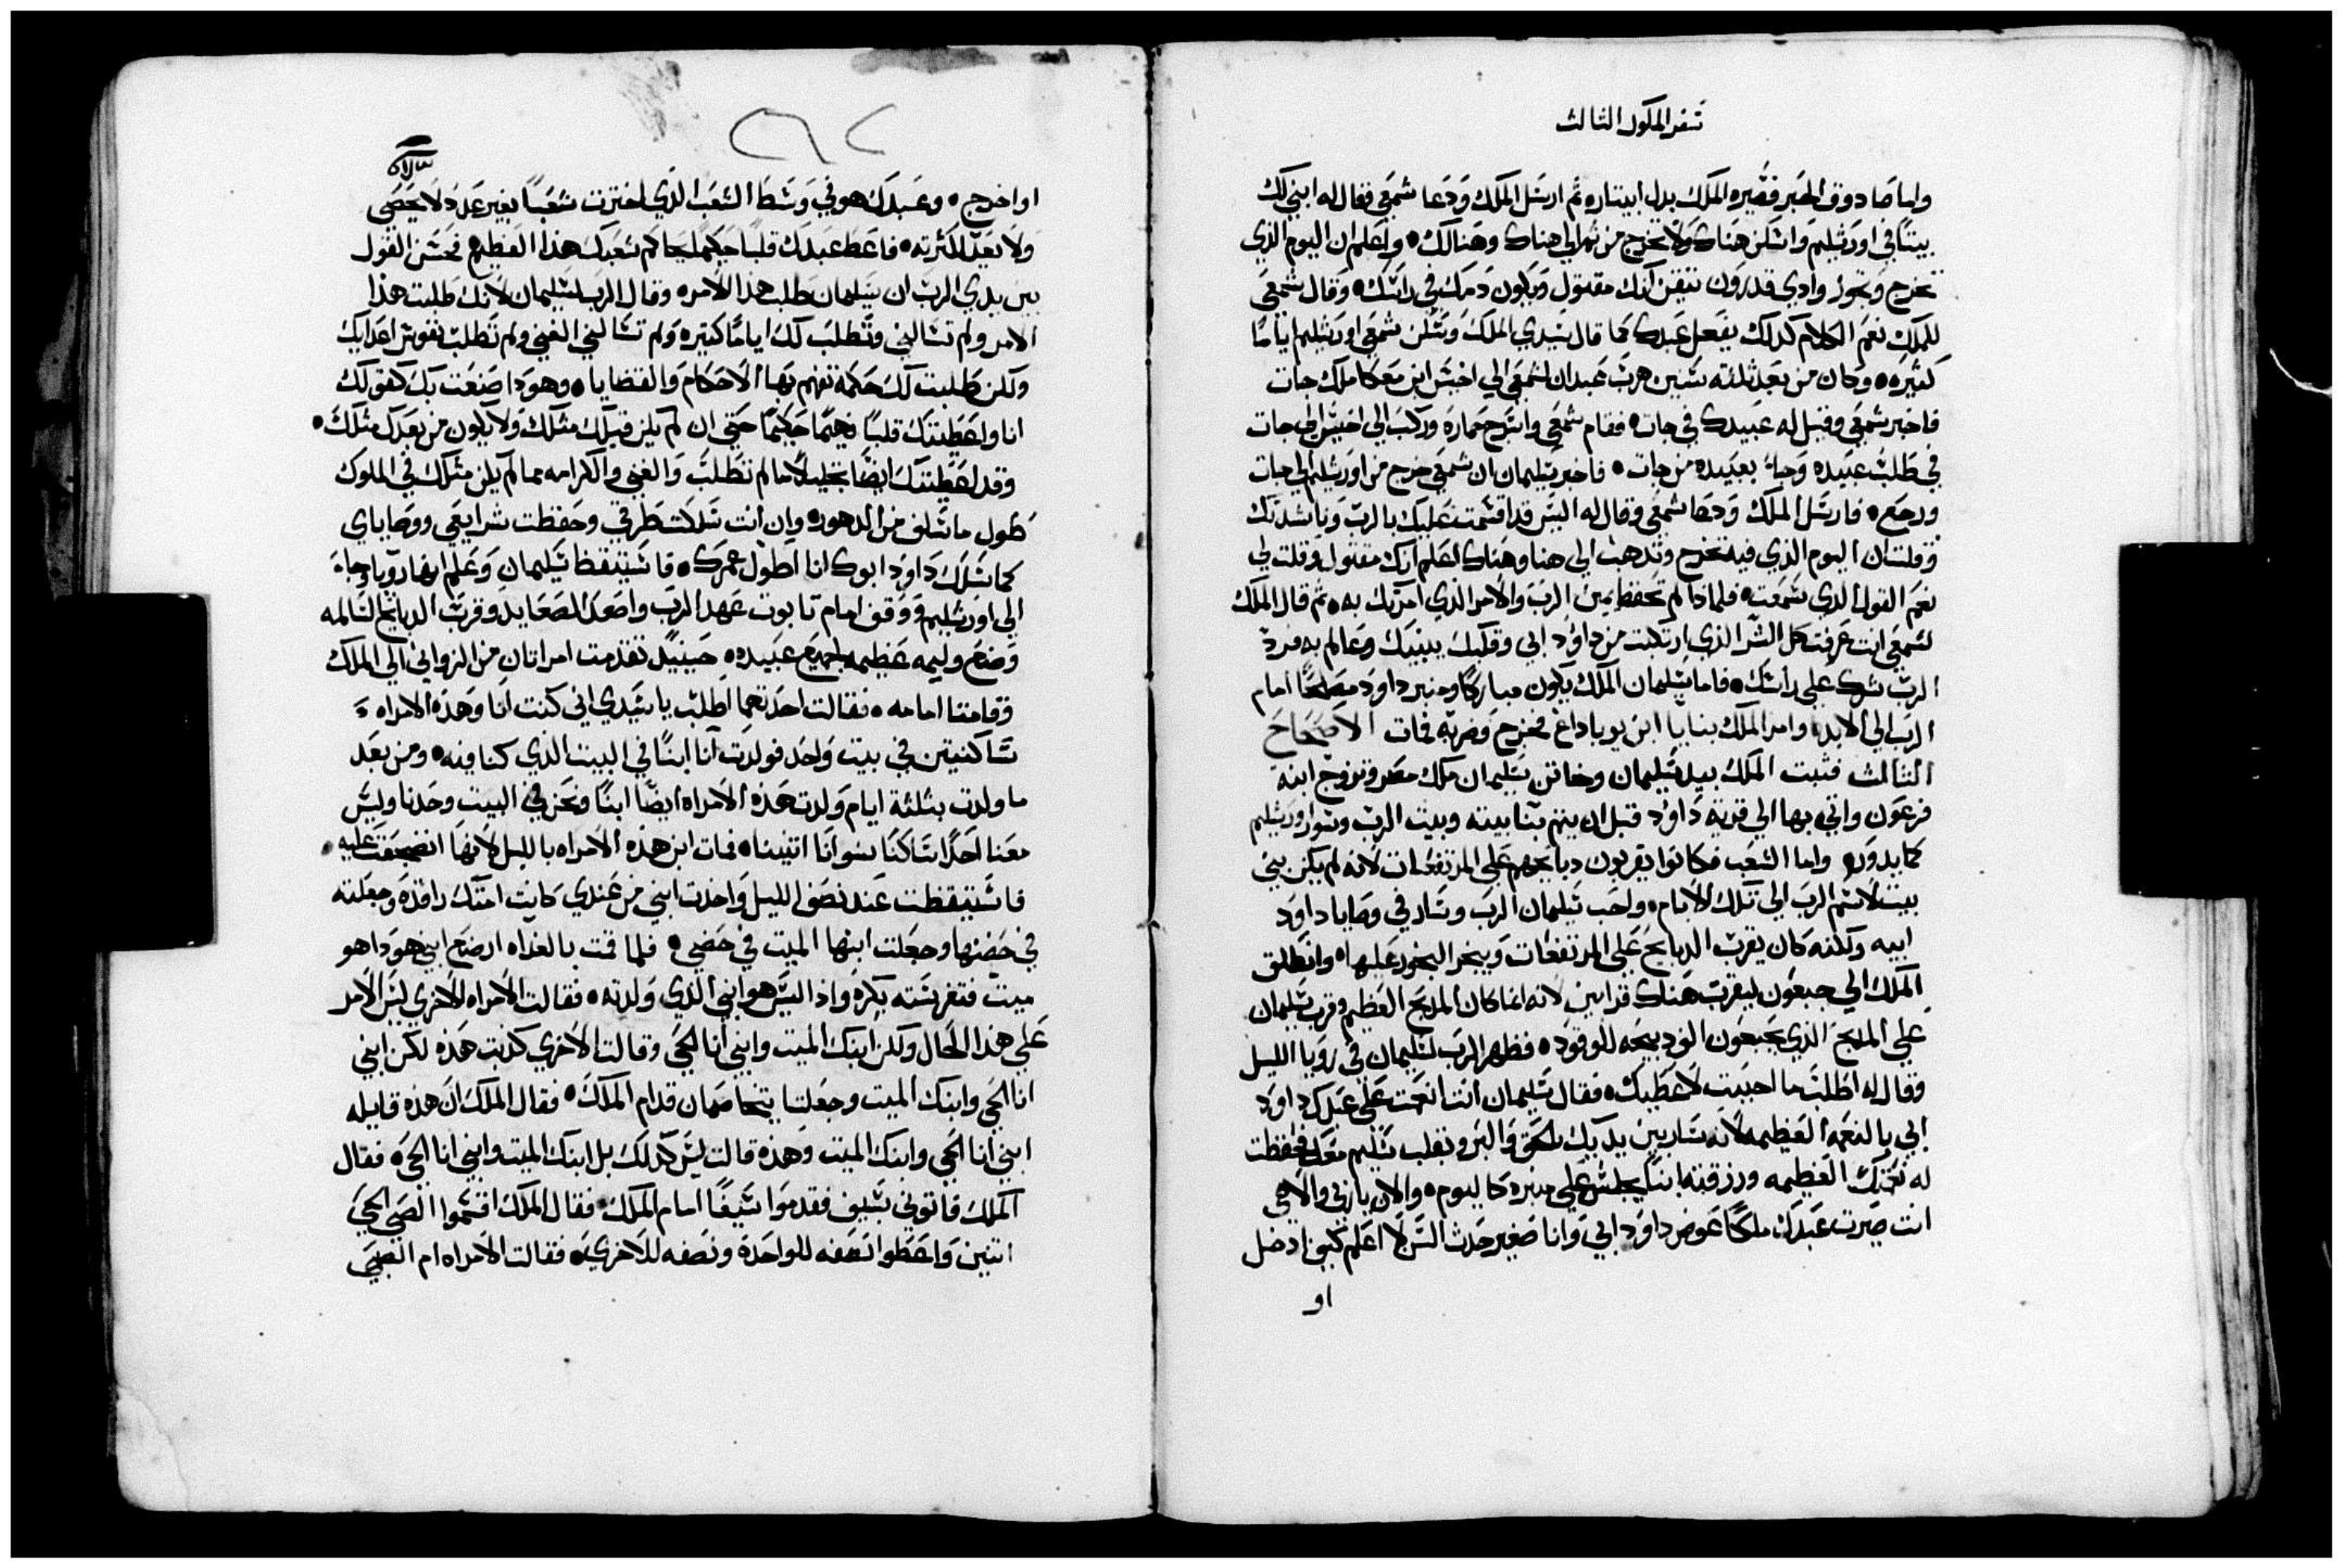 سفر الملوك الثالث
واما صادوق الحبر فصيره الملك بدل ابيتار ثم ارسل الملك ودعا شمعي فقال له ابني لك
بيتا في اورشليم واسكن هناك ولا تخرج من ثم الي هناك وهنالك واعلم ان اليوم الذي
تخرج وتجوز وادي قدرون تيقن انك مقتول ويكون دمك في راسك وقال شمعي
للملك نعم الكلام كذلك يفعل عبدك كما قال سيدي الملك وسكن شمعي اورشليم اياما
كثيره وكان من بعد ثلثه سنين هرب عبدان لشمعي الي اخيس ابن معكا ملك جات
فاخبر شمعي وقيل له عبيدك في جات فقام شمعي واسرج حماره وركب الي اخيس الي جات
في طلب عبيده وجاء بعبيده من جات فاخبر سليمان ان شمعي خرج من اورشليم الي جات
ورجع فارسل الملك ودعا شمعي وقال له اليس قد اقسمت عليك بالرب وناشدتك
وقلت ان اليوم الذي فيه تخرج وتذهب الي هنا وهناك اعلم انك مقتول وقلت لي
نعم القول الذي سمعت فلماذا لم تحفظ يمين الرب والامر الذي امرتك به ثم قال الملك
لشمعي انت عرفت كل الشر الذي ارتكبت من داود ابي وقلبك ينبيك وعالم به فرد
الرب شرك علي راسك فاما سليمان الملك يكون مباركا ومنبر داود مصلحا امام
الرب الي الابد وامر الملك بنايا ابن يوياداع فخرج وضربه فمات الاصحاح
الثالث فثبت الملك بيد سليمان وخاتن سليمان ملك مصر وتزوج ابنة
فرعون واتي بها الي قرية داود قبل ان يتم بنا بيته وبيت الرب وسوار اورشليم
كما يدور واما الشعب فكانوا يقربون دبايحهم علي المرتفعات لانه لم يكن بني
بيت لاسم الرب الي تلك الايام واحب سليمان الرب وسار في وصايا داود
ابيه ولكنه كان يقرب الدبايح علي المرتفعات ويبخر البخور عليها وانطلق
الملك الي جبعون ليقرب هناك قرابين لانه انما كان المدبح العظيم وقرب سليمان
علي المدبح الذي بجبعون الف دبيحه للوقود فظهر الرب لسليمان في رويا الليل
وقال له اطلب ما احببت لاعطيك فقال سليمان انت انعمت علي عبدك داود
ابي بالنعمه العظيمه لانه سار بين يديك بالحق والبر وبقلب سليم معك فحفظت
له نعمتك العظيمه ورزقته ابنا يجلس علي منبره كاليوم والان يا ربي والاهي
انت صيرت عبدك ملكا عوض داود ابي وانا صغير حدث السن لا اعلم كيف ادخل
او
٢٦٢
او اخرج وعبدك هو في وسط الشعب الذي اخترت شعبا بغير عدد لا يحصي
ولا يعد لكثرته فاعط عبدك قلبا حكيما ليحاكم شعبك هذا العظيم فحسن القول
بين يدي الرب ان سليمان طلب هذا الامر وقال الرب لسليمان لانك طلبت هذا
الامر ولم تسالني وتطلب لك اياما كتيره ولم تسالني الغني ولم تطلب نفوس اعدايك
ولكن طلبت لك حكمة تفهم بها الاحكام والقضايا وهودا صنعت بك كقولك
انا واعطيتك قلبا فهيما حكيما حتي ان لم يكن قبلك مثلك ولا يكون من بعدك مثلك
وقد اعطيتك ايضا ما لم تطلب والغني والكرامه مما لم يكن مثلك في الملوك
طول ما سلف من الدهور وان انت سلكت طرقي وحفظت شرايعي ووصاياي
كما سلك داود ابوك انا اطول عمرك فاستيقظ سليمان وعلم انها رويا وجاء
الي اورشليم ووقف امام تابوت عهد الرب واصعد الصعايد وقرب الدبايح السالمه
وصنع وليمه عظيمه لجميع عبيده حينيد تقدمت امراتان من الزواني الي الملك
وقامتا امامه فقالت احدتهما اطلب يا سيدي اني كنت انا وهذه الامراه و
ساكنتين في بيت واحد فولدت انا ابنا في البيت الذي كنا فيه ومن بعد
ما ولدت بثلثة ايام ولدت هذه الامراه ايضا ابنا ونحن في البيت وحدنا وليس
معنا احدا ساكنا سوانا اتنينا فمات ابن هذه الامراه بالليل لانها انضجعت عليه
فاستيقظت عند نصف الليل واخدت ابني من عندي كانت امتك راقدة وجعلته
في حضنها وجعلت ابنها الميت في حضني فلما قمت بالغداه ارضع ابني هودا هو
ميت فتفرسته بكره واذ اليس هو ابني الذي ولدته فقالت الامراه الاخري ليس الامر
علي هذا الحال ولكن ابنك الميت وابني انا الحي وقالت الاخري كدبت هذه لكن ابني
انا الحي وابنك الميت وجعلتا يتخاصمان قدام الملك فقال الملك ان هذه قايله
ابني انا الحي وابنك الميت وهذه قالت ليس كدلك بل ابنك الميت وابني انا الحي فقال
الملك فاتوني بسيف فقدموا سيفا امام الملك فقال الملك اقسموا الصبي الحي
اتنين واعطوا نصفه للواحدة ونصفه للاخري فقالت الامراه ام الصبي